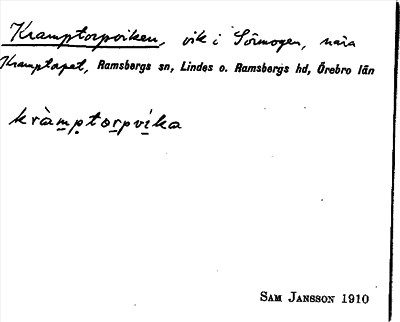 Kramptorpviken, vik i Sörmogen, nära
Kramptorpet, Ramsbergs sn, Lindes o. Ramsbergs hd, Örebro län
kràmptorpvika
SAM JANSSON 1910